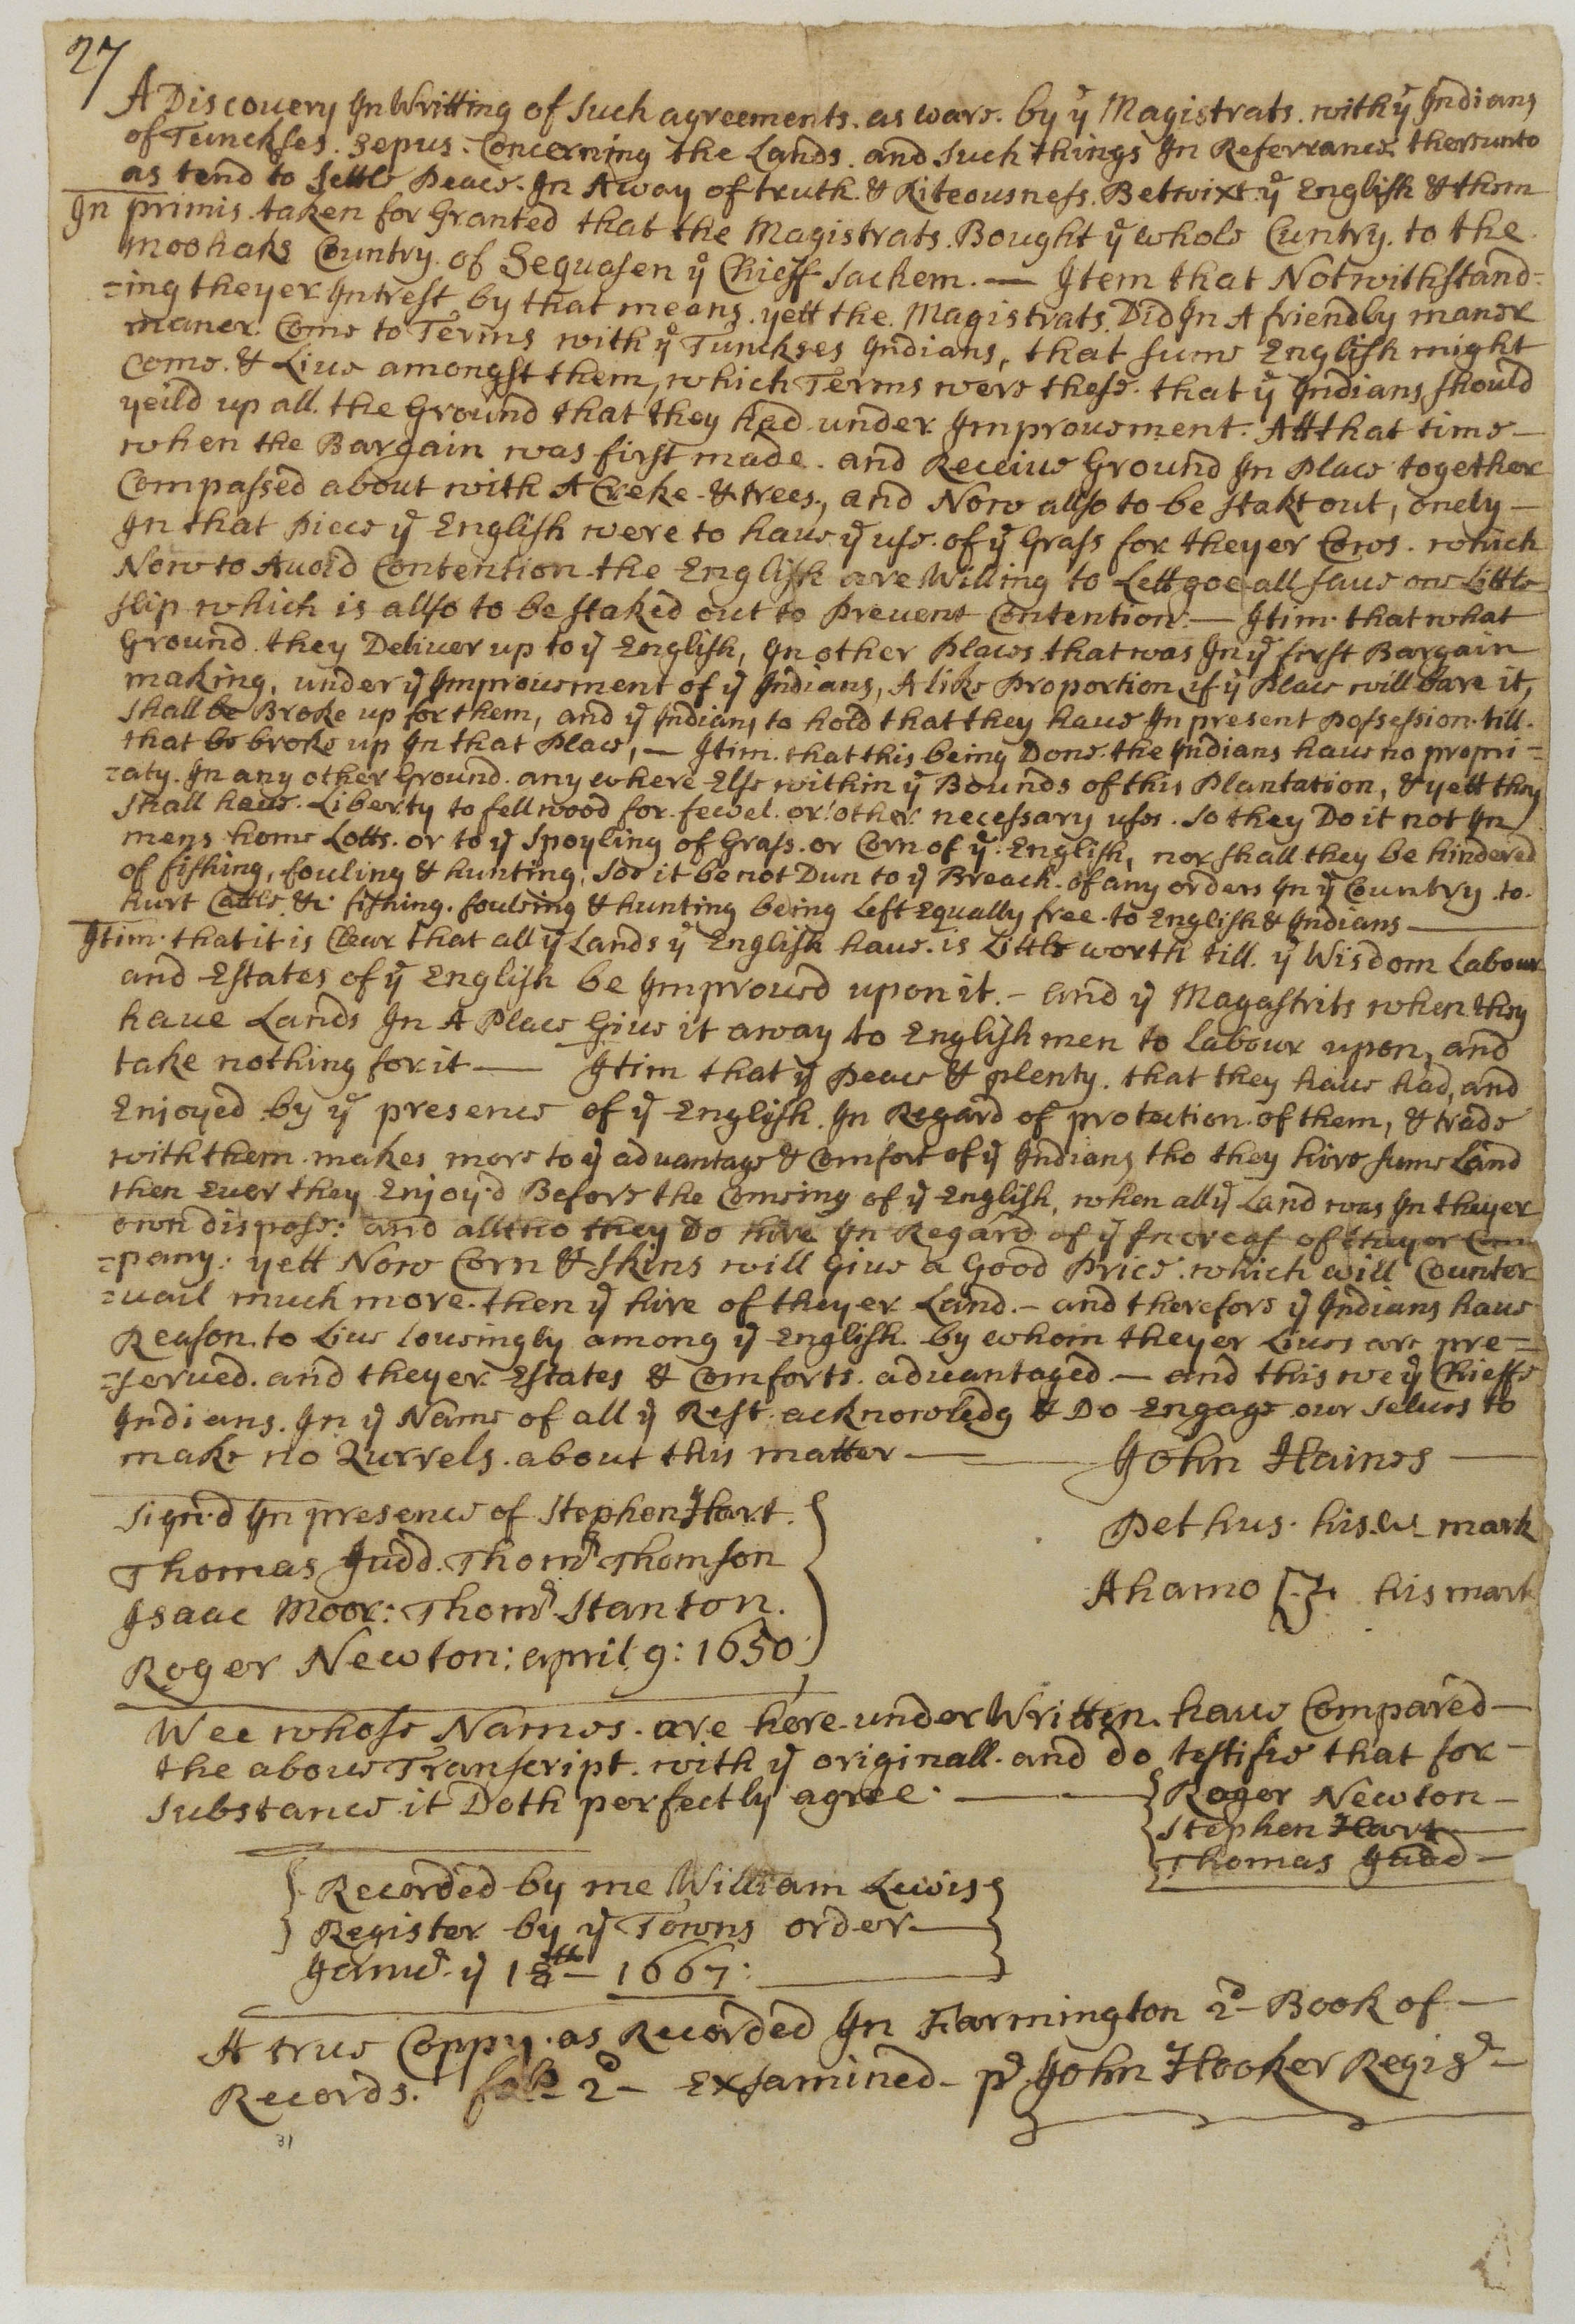 27
A Discouery In Writting of such agreements. as ware. by yͤ Magistrats. with yͤ Indians
of Tunckses. Sepus. Concerning the Lands. and such things In Referrance thereunto
as tend to settle Peace. In A way of truth. & Riteousness. Betwixt. yͤ English & them
In primis. taken for Granted that the Magistrats. Bought yͤ whole Cuntry. to the.
moohaks Country. of Sequasen yͤ Chieff Sachem. — Item that Notwithstand=
=ing theyer Intrest by that means. yett the. Magistrats. Did In A friendly maner
maner. Come to Terms with yͤ Tunckses Indians, that sume English might
Come. & Liue amongst them, which Terms were these. that yͤ Indians should
yeild up all. the Ground that they had under Improuement. Att that time —
when the Bargain was first made. and Receiue Ground In Place together
Compassed about with A Creke - & trees., and Now allso to be stakt out, onely —
In that Piece yͤ English were to haue yͤ use. of yͤ Grass for theyer Cows. which
Now to Auoid Contention the English are Willing to Lett goe all saue one Little
slip which is allso to be staked out to Preuent Contention. — Itim. that what
Ground. they Deliuer up to yͤ English, In other Places that was In yͤ first Bargain
making, under yͤ Improuement of yͤ Indians, A like Proportion if yͤ Place will bare it,
shall be Broke up for them, and yͤ Indians to hold that they haue In present Possession. till.
that be broke up In that Place, — Itim. that this being Done. the Indians haue no propri=
=aty. In any other Ground. any where Else within yͤ Bounds of this Plantation, & yett they
shall haue. Liberty to fell wood for. fewel. or other necessary uses. so they Do it not In
mens home Lotts. or to yͤ spoyling of Grass. or Corn of yͤ. English, nor shall they be hindered
of fishing, fouling & hunting, soe it be not Dun to yͤ Breach. of any orders In yͤ Country to.
hurt Cattle &c. fishing. fouleing & hunting being Left Equally free. to English & Indians —
Itim. that it is Clear that all yͤ Lands yͤ English haue. is Little worth till. yͤ Wisdom Labour
and Estates of yͤ English be Improued upon it. – and yͤ Magastrits when they
haue Lands In A Place Giue it away to English men to Labour upon, and
take nothing for it — Itim that yͤ Peace & plenty. that they haue had, and
Enjoyed by yͤ presence of yͤ English. In Regard of protection of them, & trade
with them. makes more to yͤ aduantage & Comfort of yͤ Indians tho they hire sume Land
then Euer they Enjoy'd Before the Comeing of yͤ English, when all yͤ Land was In theyer
own dispose: and alltho they Do hire In Regard of yͤ Increas of theyer Com
=pany: yett Now Corn & skins will Giue a Good Price. which will Counter
=uail much more. then yͤ hire of theyer Land. – and therefore yͤ Indians haue
Reason. to Liue loueingly among yͤ English. by whom theyer Liues are pre=
=serued. and theyer Estates & Comforts. aduantaged. — and this we yͤ Chieffe
Indians. In yͤ Name of all yͤ Rest acknowledg & Do Engage our selues to
make no Qurrels. about this matter —— John Haines —
sign'd In presence of Stephen Hart.
Pethus. his mark
Thomas Judd. Thomˢ Thomson
Ahamo his mark
Isaac Moor: Thomˢ Stanton.
Roger Newton: april 9: 1650
Wee whose Names. are here. under Written. haue Compared —
the aboue Transcript. with yͤ originall. and do testifie that for –
substance it Doth perfectly agree. ——— Roger Newton –
Stephen Hart —
Thomas Judd –
Recorded by me William Lewis
Register by yͤ Towns order —
Janʳʸ. yͤ 18ᵗʰ – 1667:
A true Coppy. as Recorded In Farmington 2ᵈ – Book of –
Records. folº 2ᵈ – Exsamined – pʳ John Hooker Regisʳ –
31